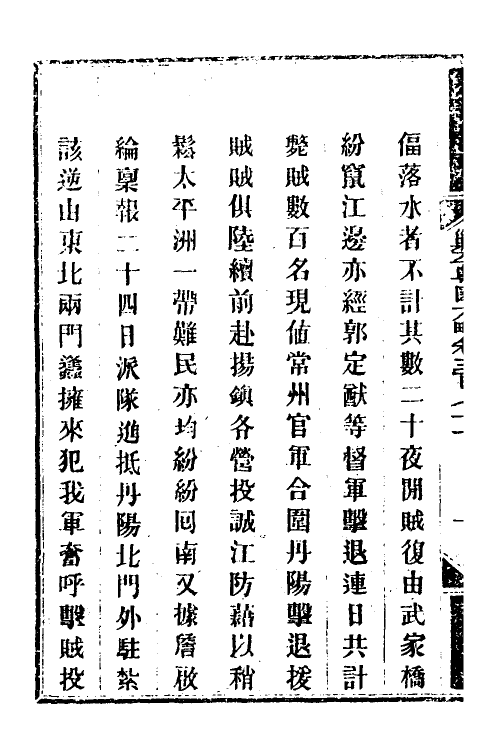 偪落水者不計其數二十夜間賊復由武家橋
紛竄江邊亦經郭定猷等督軍擊退連日共計
斃賊數百名現值常州官軍合圍丹陽擊退援
賊賊俱陸續前赴揚鎮各營投誠江防藉以稍
鬆太平洲一帶難民亦均紛紛囘南又據詹啟
綸稟報二十四日派隊進抵丹陽北門外駐紮
該逆由東北兩門蠭擁來犯我軍奮呼擊賊投